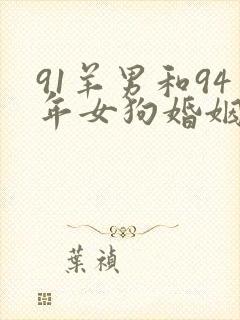 91羊男和94
年女狗婚姻
葉禎